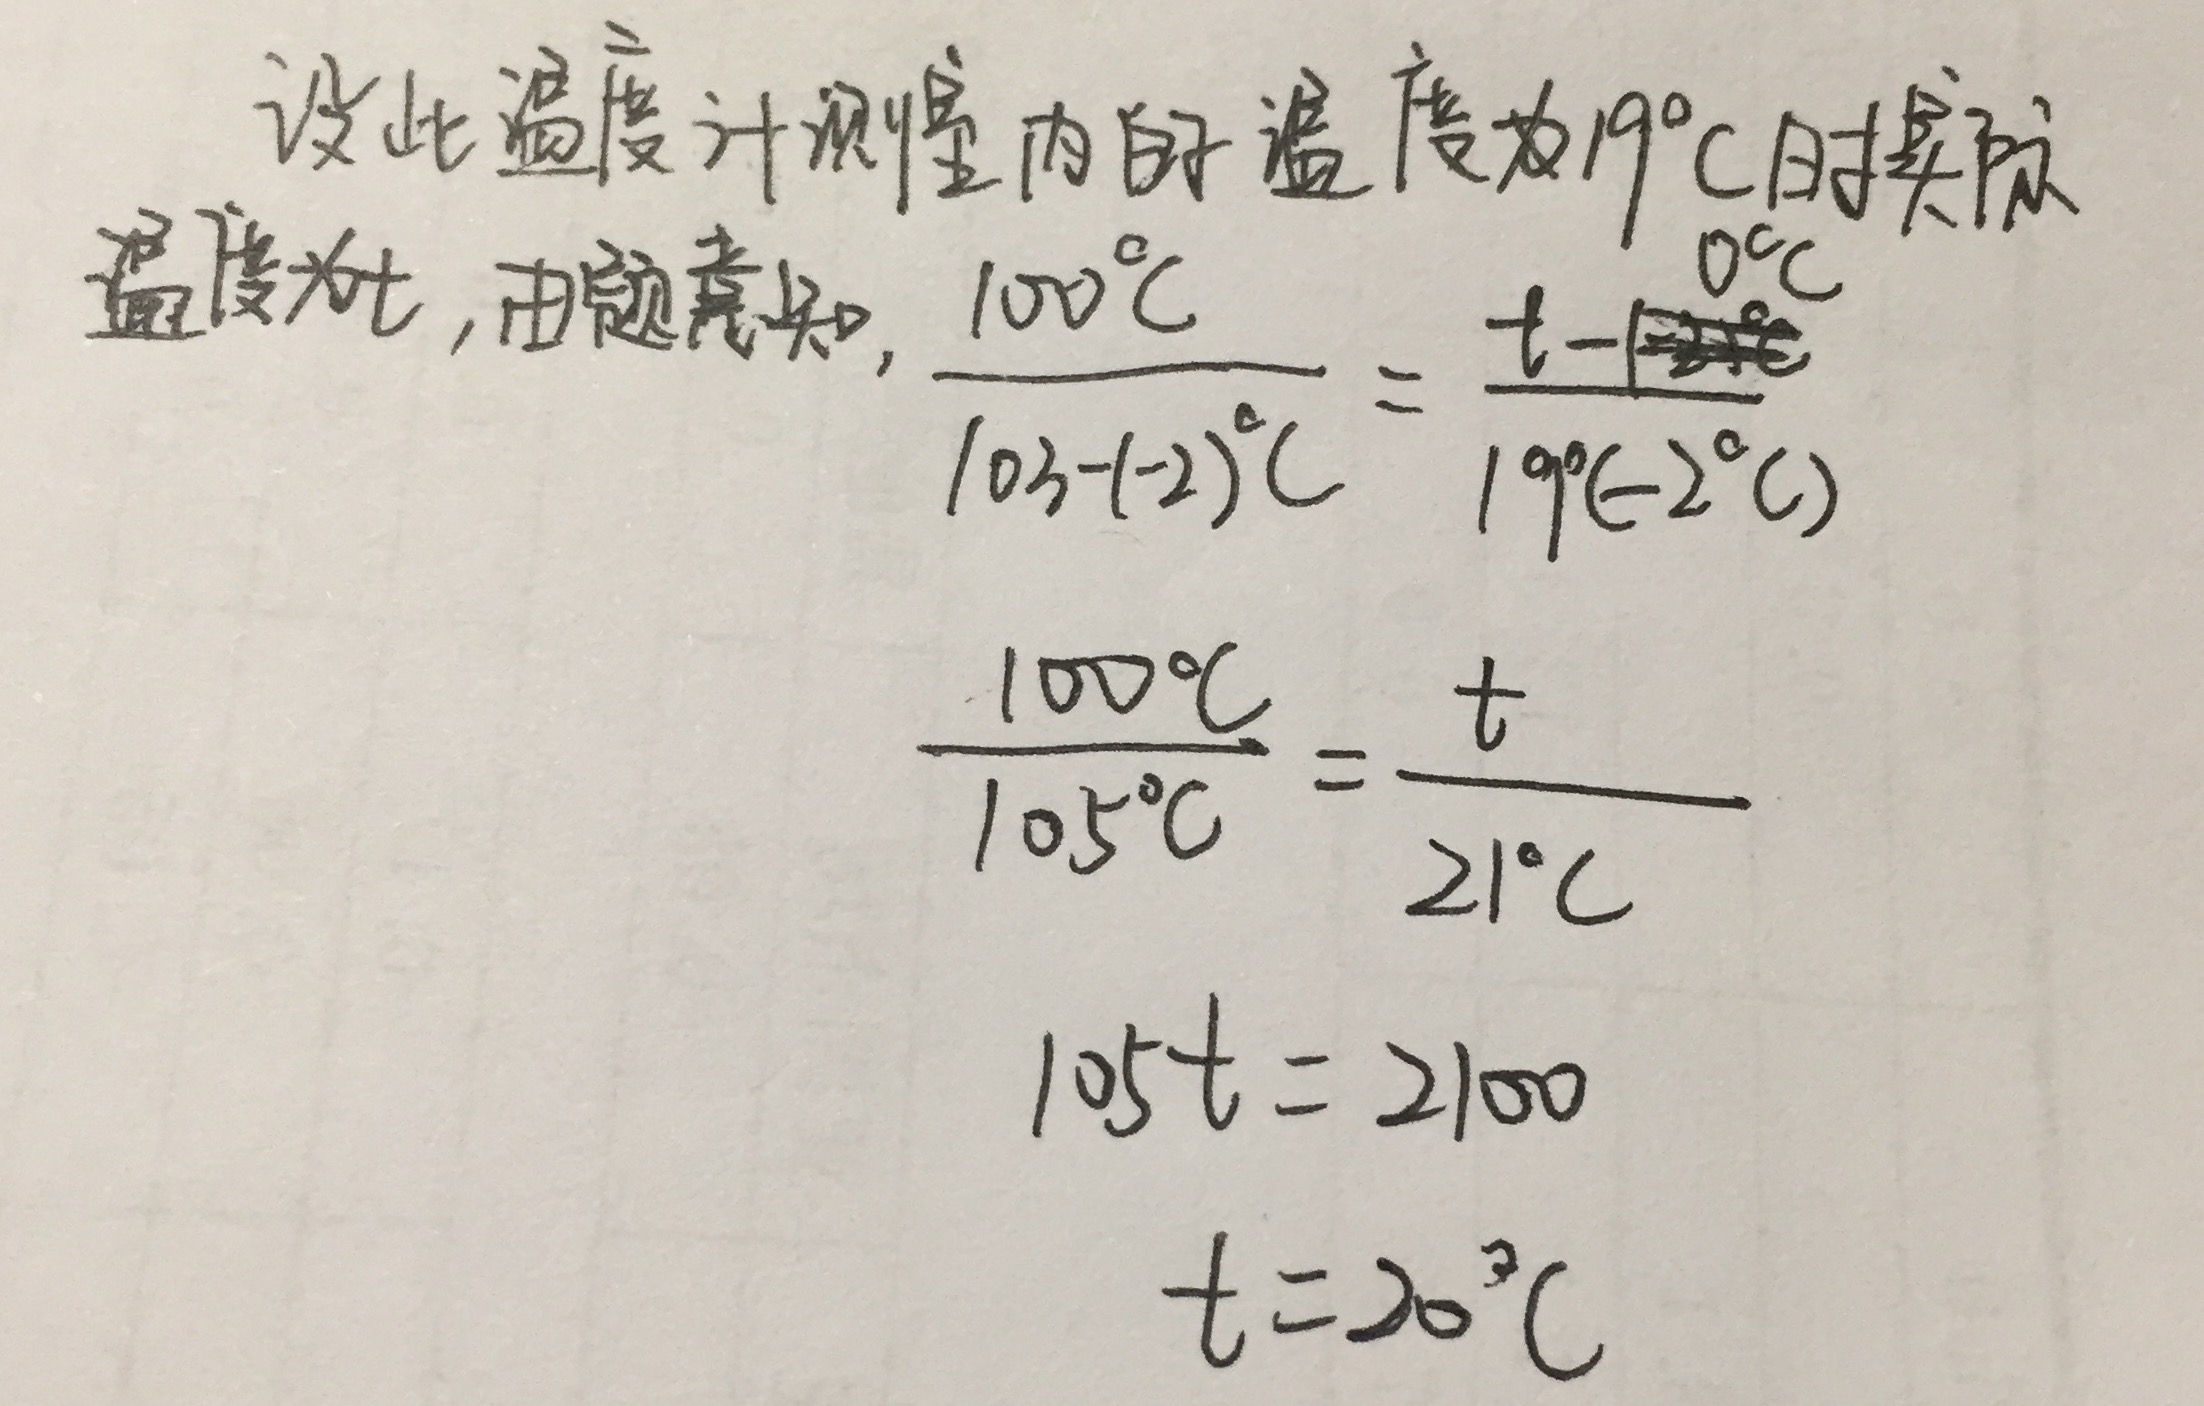 设此温度计测量内的温度为19°C时实际
温度为t,由题意知, 100°C / 103-(-2)°C = t-0°C / 19°(-2°C)
100°C / 105°C = t / 21°C
105t=2100
t=20°C